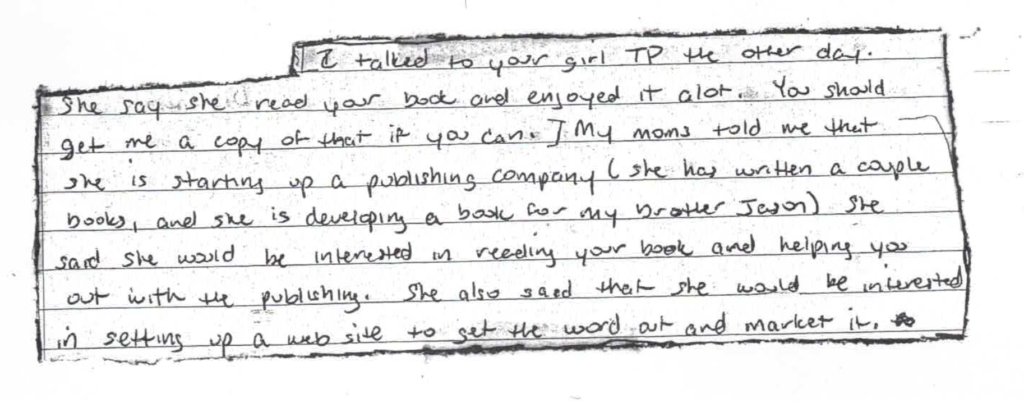 I talked to your girl TP the other day.
She say she read your book and enjoyed it alot. You should
get me a copy of that if you can.] My moms told me that
she is starting up a publishing company (she has written a couple
books, and she is developing a book for my brother Jason) She
said she would be interested in reeding your book and helping you
out with the publishing. She also saed that she would be interested
in setting up a web site to get the word out and market it.